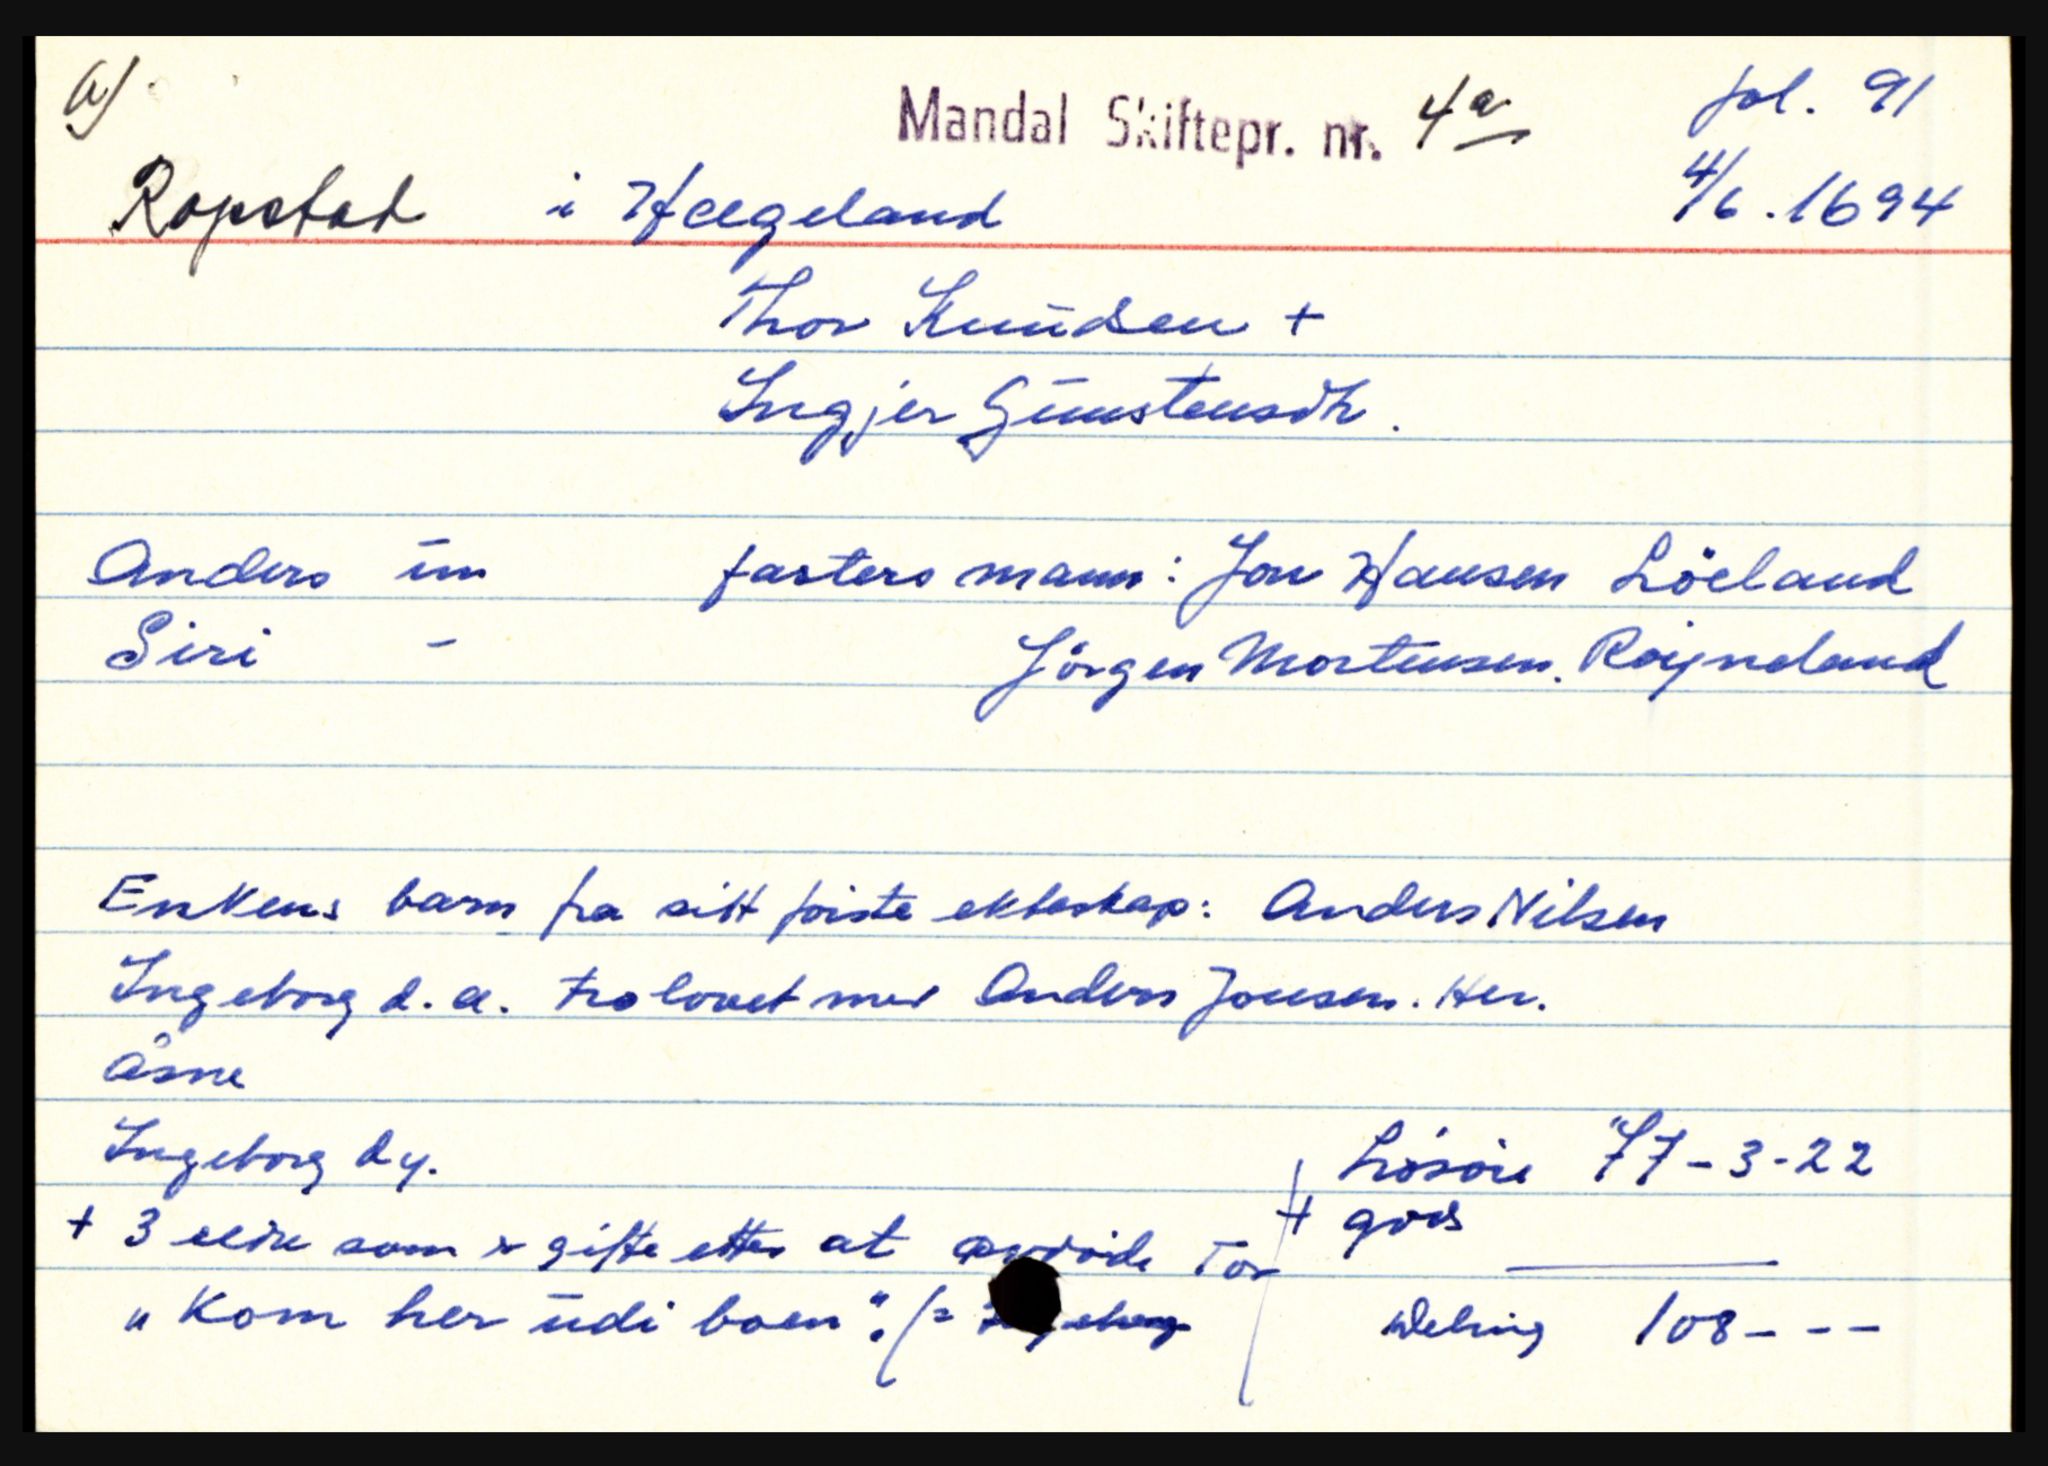 a)
Mandal Skiftepr. nr. 4a
fol. 91
Ropstad i Hægeland
4/6. 1694
Thor Knudsen +
Ingjer Gunstensdtr.
Anders um fasters mann: Jon Hansen Löeland
Siri - Jörgen Mortensen. Röyneland
Enkens barn fra sitt förste ekteskap: Anders Nilsen
Ingeborg d. æ. trolovet med Anders Jonsen. Her.
Åsne
Ingeborg d y.
+ 3 eldre som er gifte etter at avdöde Tor
„Kom her udi boen". (=
Lösöre 77-3-22
+ gods
Utelning 108 - - -